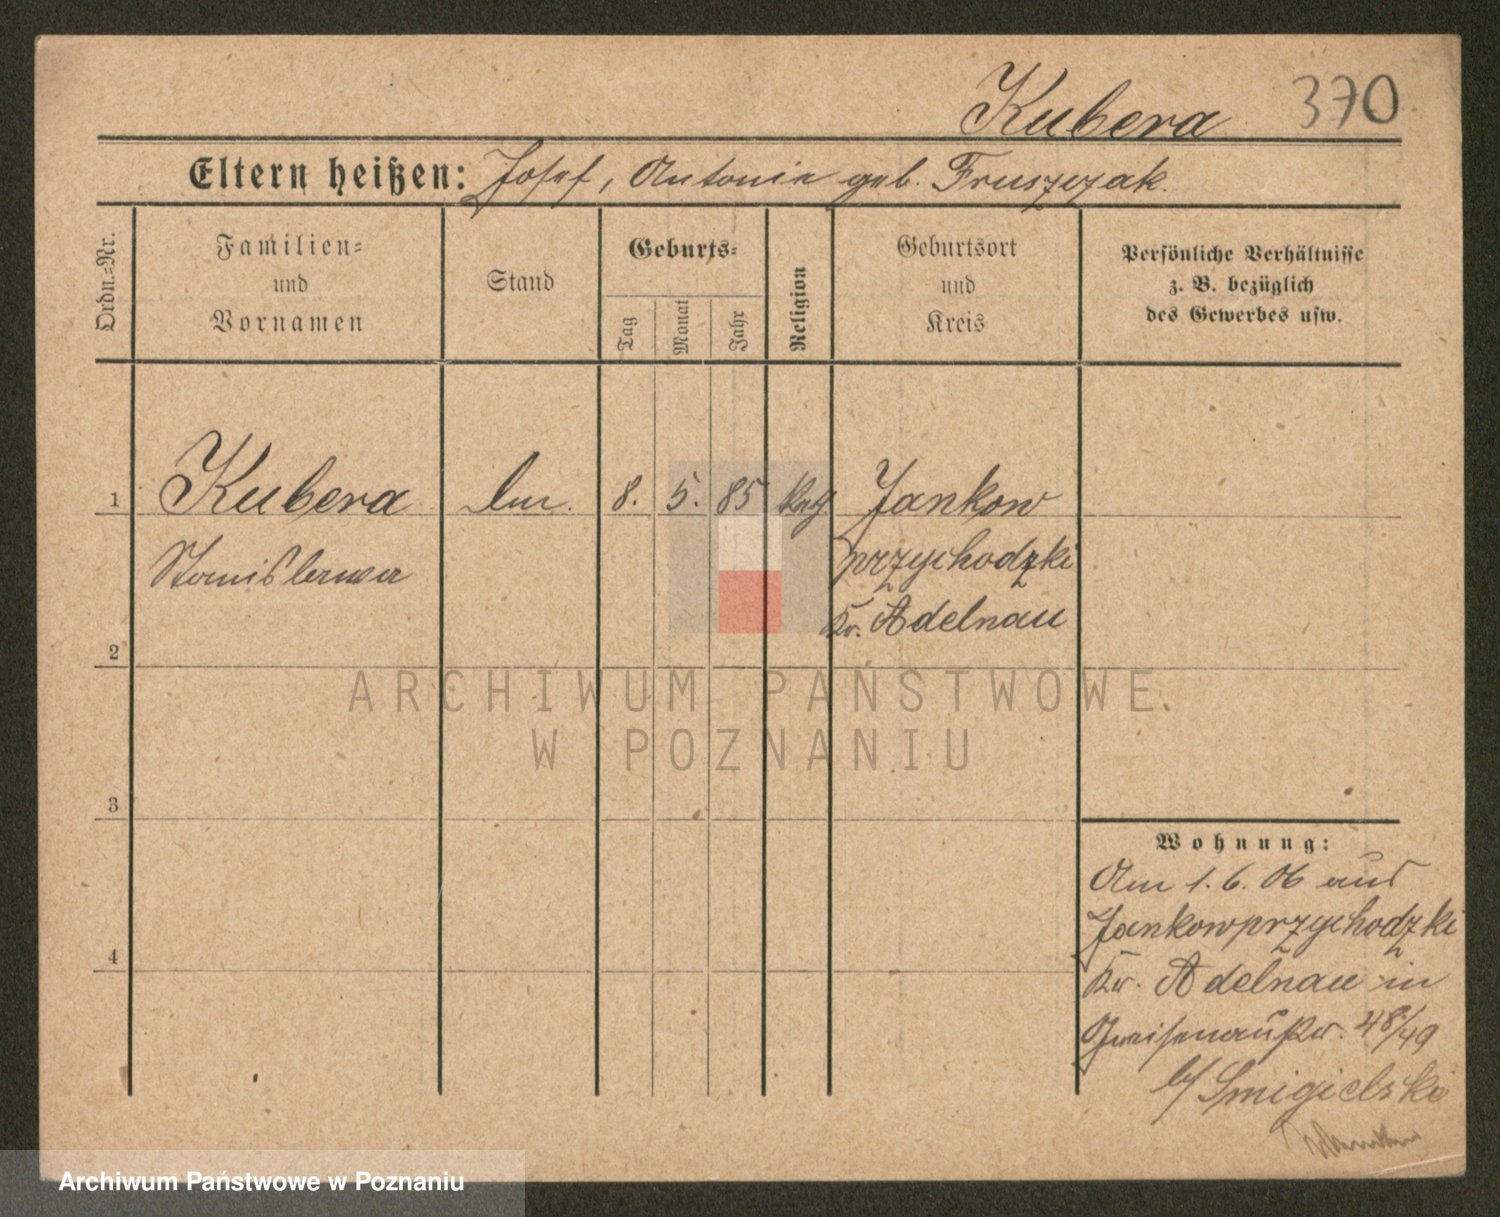 Kubera 370
Eltern heißen: Josef, Antonie geb. Fruszczak.
Ordn.=Nr.
Familien=
und
Vornamen
Stand
Geburts=
Tag
Monat
Jahr
Religion
Geburtsort
und
Kreis
Persönliche Verhältnisse
z. B. bezüglich
des Gewerbes usw.
1 Kubera 8. 5. 85 kath Jankow
Stanislawa przychodzki
Kr. Adelnau
2
3
4
Wohnung:
Am 1. 6. 06 aus
Jankowprzychodzki
Kr. Adelnau in
Gneisenaustr. 48/49
b/ Smigielski
ARCHIWUM PAŃSTWOWE
W POZNANIU
Archiwum Państwowe w Poznaniu